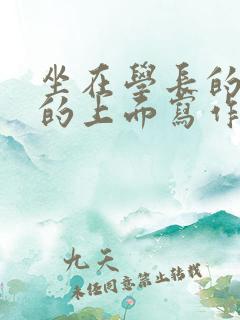 坐在學長的
的上而寫作
九天
未經同意禁止轉載